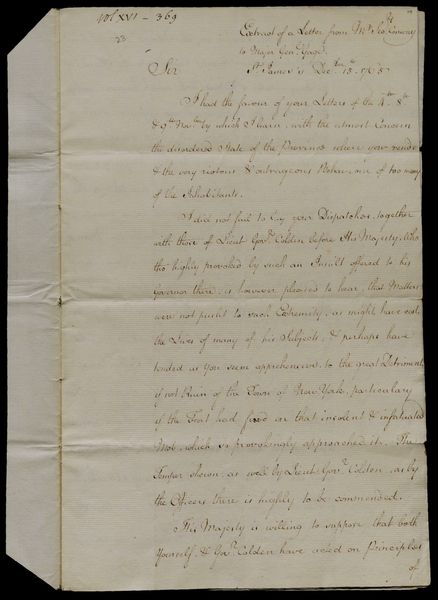 Vol XVI - 369
23
Extract of a Letter from Mr. Sec. Conway
to Major Genl. Gage.
Sir St. James's Decr. 15th. 1765
I had the favour of your Letters of the 4th. 8th.
& 9th. Novr. by which I learn, with the utmost Concern
the disordered State of the Province where you reside
& the very riotous & outrageous Behaviour of too many
of the Inhabitants.
I did not fail to lay your Dispatches, together
with those of Lieut Govr. Colden before His Majesty, Who
tho highly provoked by such an Insult offered to his
Governor there, is however pleased to hear, that Matters
were not pushed to such Extremity, as might have cost
the Lives of many of his Subjects, & perhaps have
tended as you seem apprehensive, to the great Detriment,
if not Ruin of the Town of New York, particularly
if the Fort had fired on that insolent & infatuated
Mob, which so provokingly approached it. The
Temper shown, as well by Lieut. Govr. Colden, as by
the Officers there is highly to be commended.
His Majesty is willing to suppose that both
Yourself, & Govr. Colden have acted on Principles
of